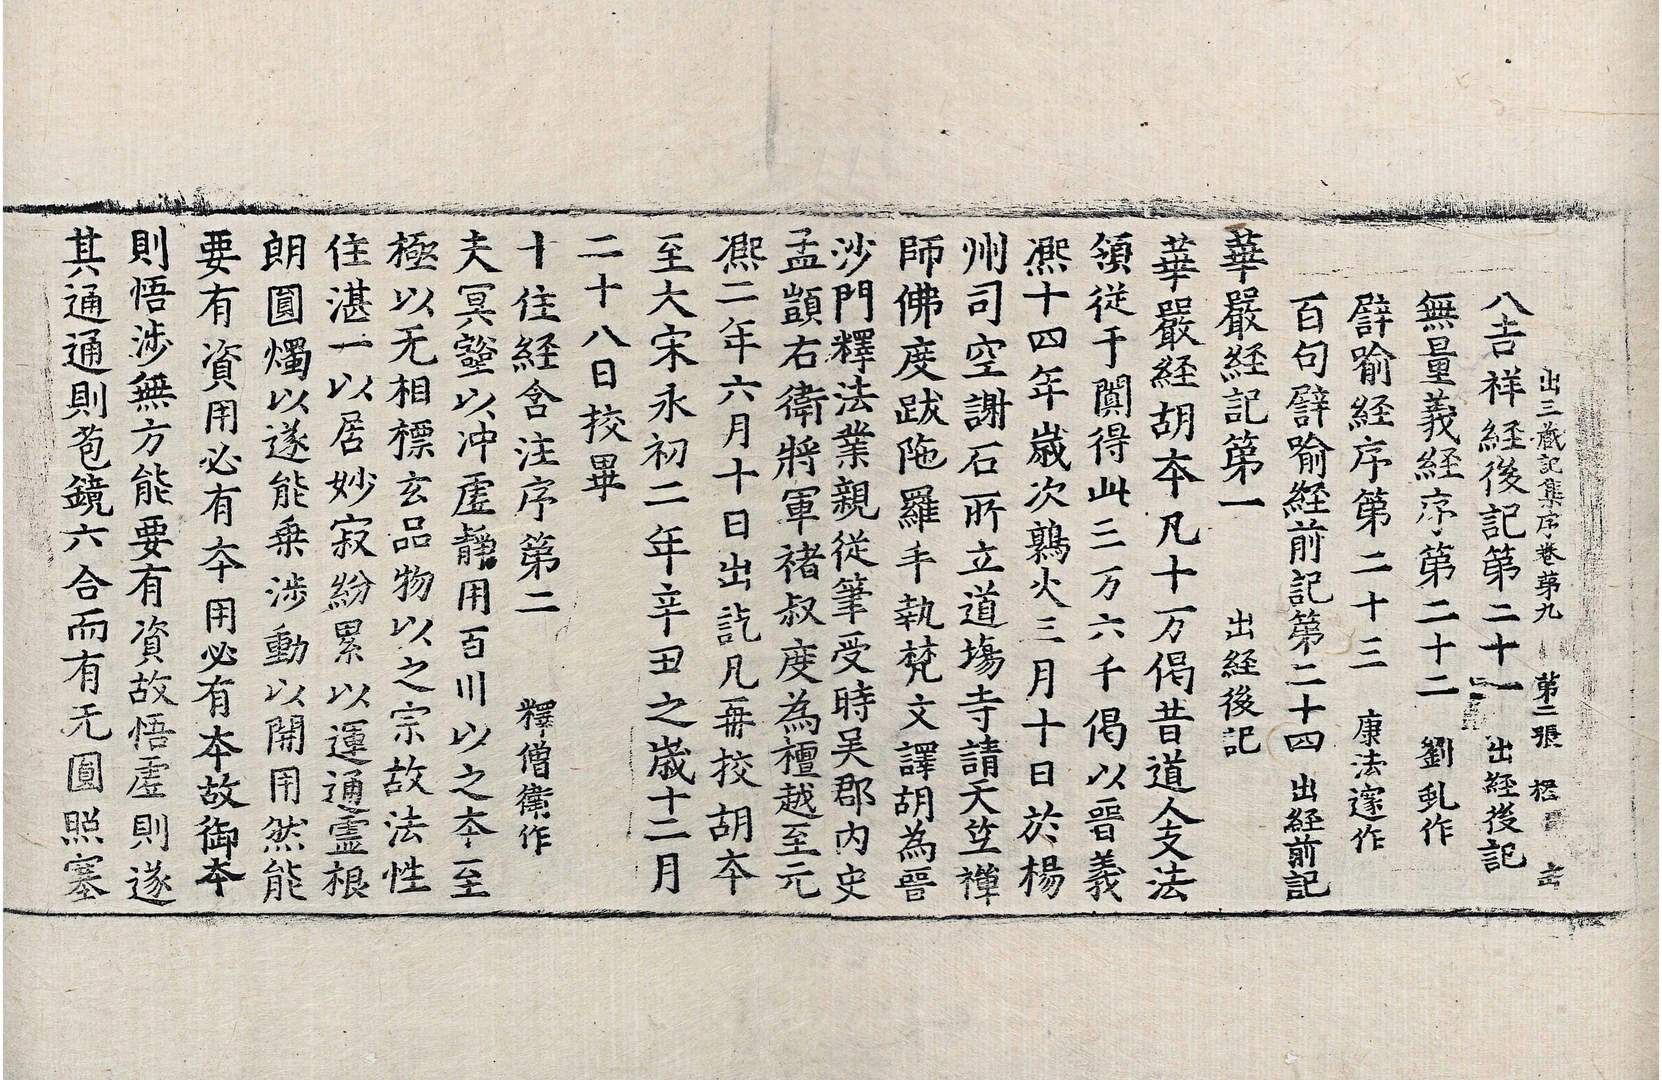 出三藏記集序卷第九 第二張
八吉祥経後記第二十一 出経後記
無量義経序第二十二 劉虬作
譬喻経序第二十三 康法邃作
百句譬喻経前記第二十四 出経前記
華嚴経記第一 出経後記
華嚴経胡夲凡十万偈昔道人支法
領従于闐得此三万六千偈以晉義
熈十四年歲次鶉火三月十日於楊
州司空謝石所立道場寺請天竺禪
師佛度跋陁羅手執梵文譯胡為晉
沙門釋法業親従筆受時吴郡内史
孟顗右衛將軍褚叔度為檀越至元
熈二年六月十日出訖凡再挍胡夲
至大宋永初二年辛丑之歲十二月
二十八日挍畢
十住経含注序第二 釋僧衛作
夫冥壑以冲虛静用百川以之夲至
極以无相標玄品物以之宗故法性
住湛一以居妙寂紛累以運通靈根
朗圓燭以遂能乗涉動以開用然能
要有資用必有夲用必有夲故御夲
則悟涉無方能要有資故悟虛則遂
其通通則苞鏡六合而有无圓照塞